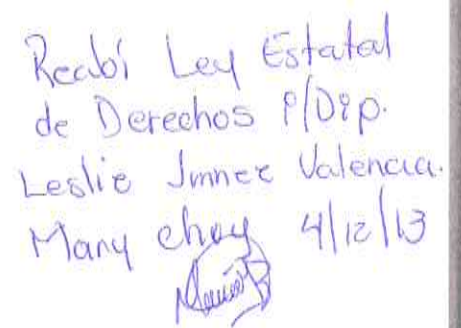 Recibí Ley Estatal
de Derechos P/Dip.
Leslie Jmnez Valencia.
Many choy 4/12/13